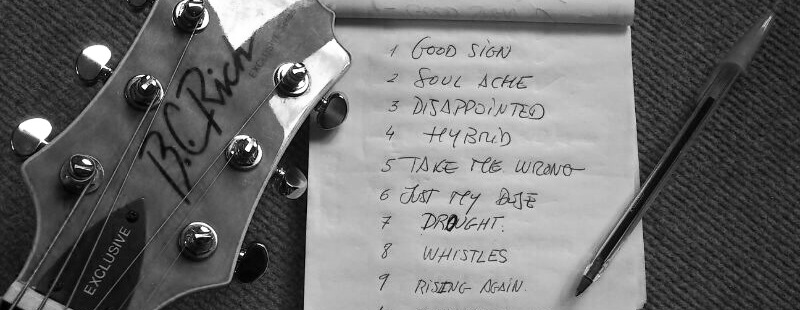 B.C. Rich
EXCLUSIVE
1 GOOD SIGN
2 SOUL ACHE
3 DISAPPOINTED
4 HYBRID
5 TAKE ME WRONG
6 JUST MY
7 DROUGHT.
8 WHISTLES
9 RISING AGAIN.